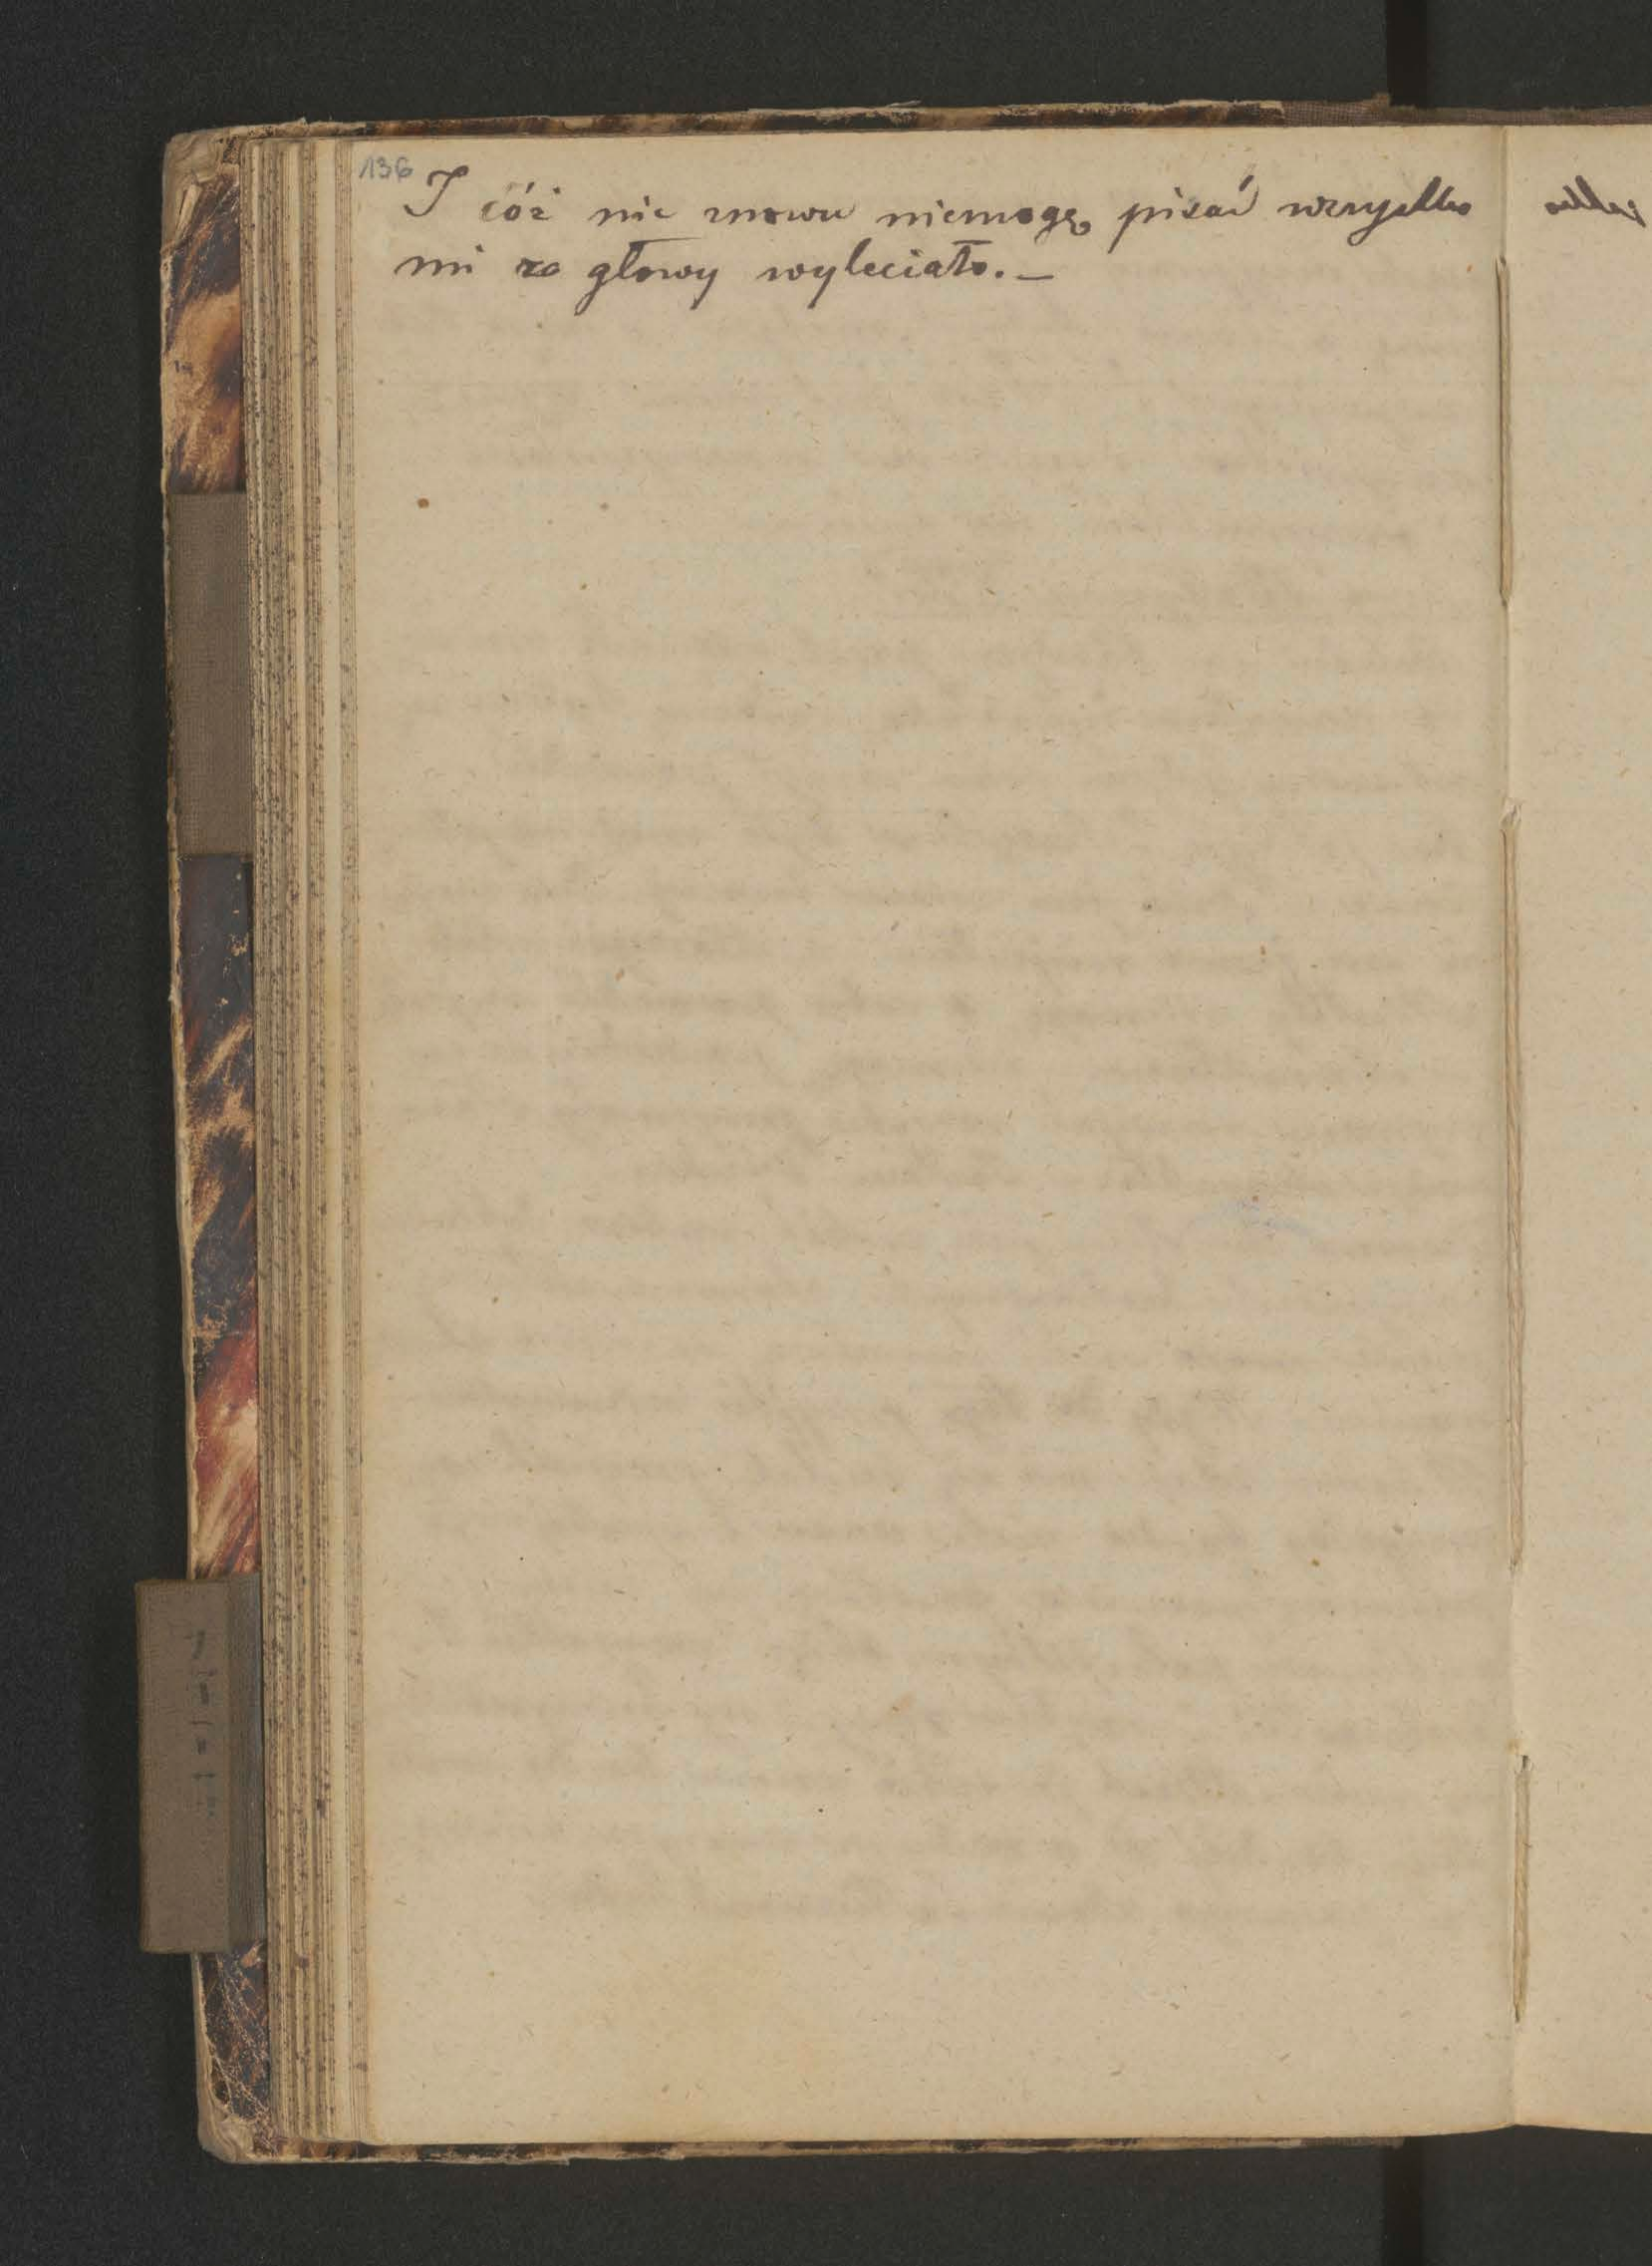 136
I cóż nic znowu niemogę pisać wszystko
mi za głowy wyleciało. –